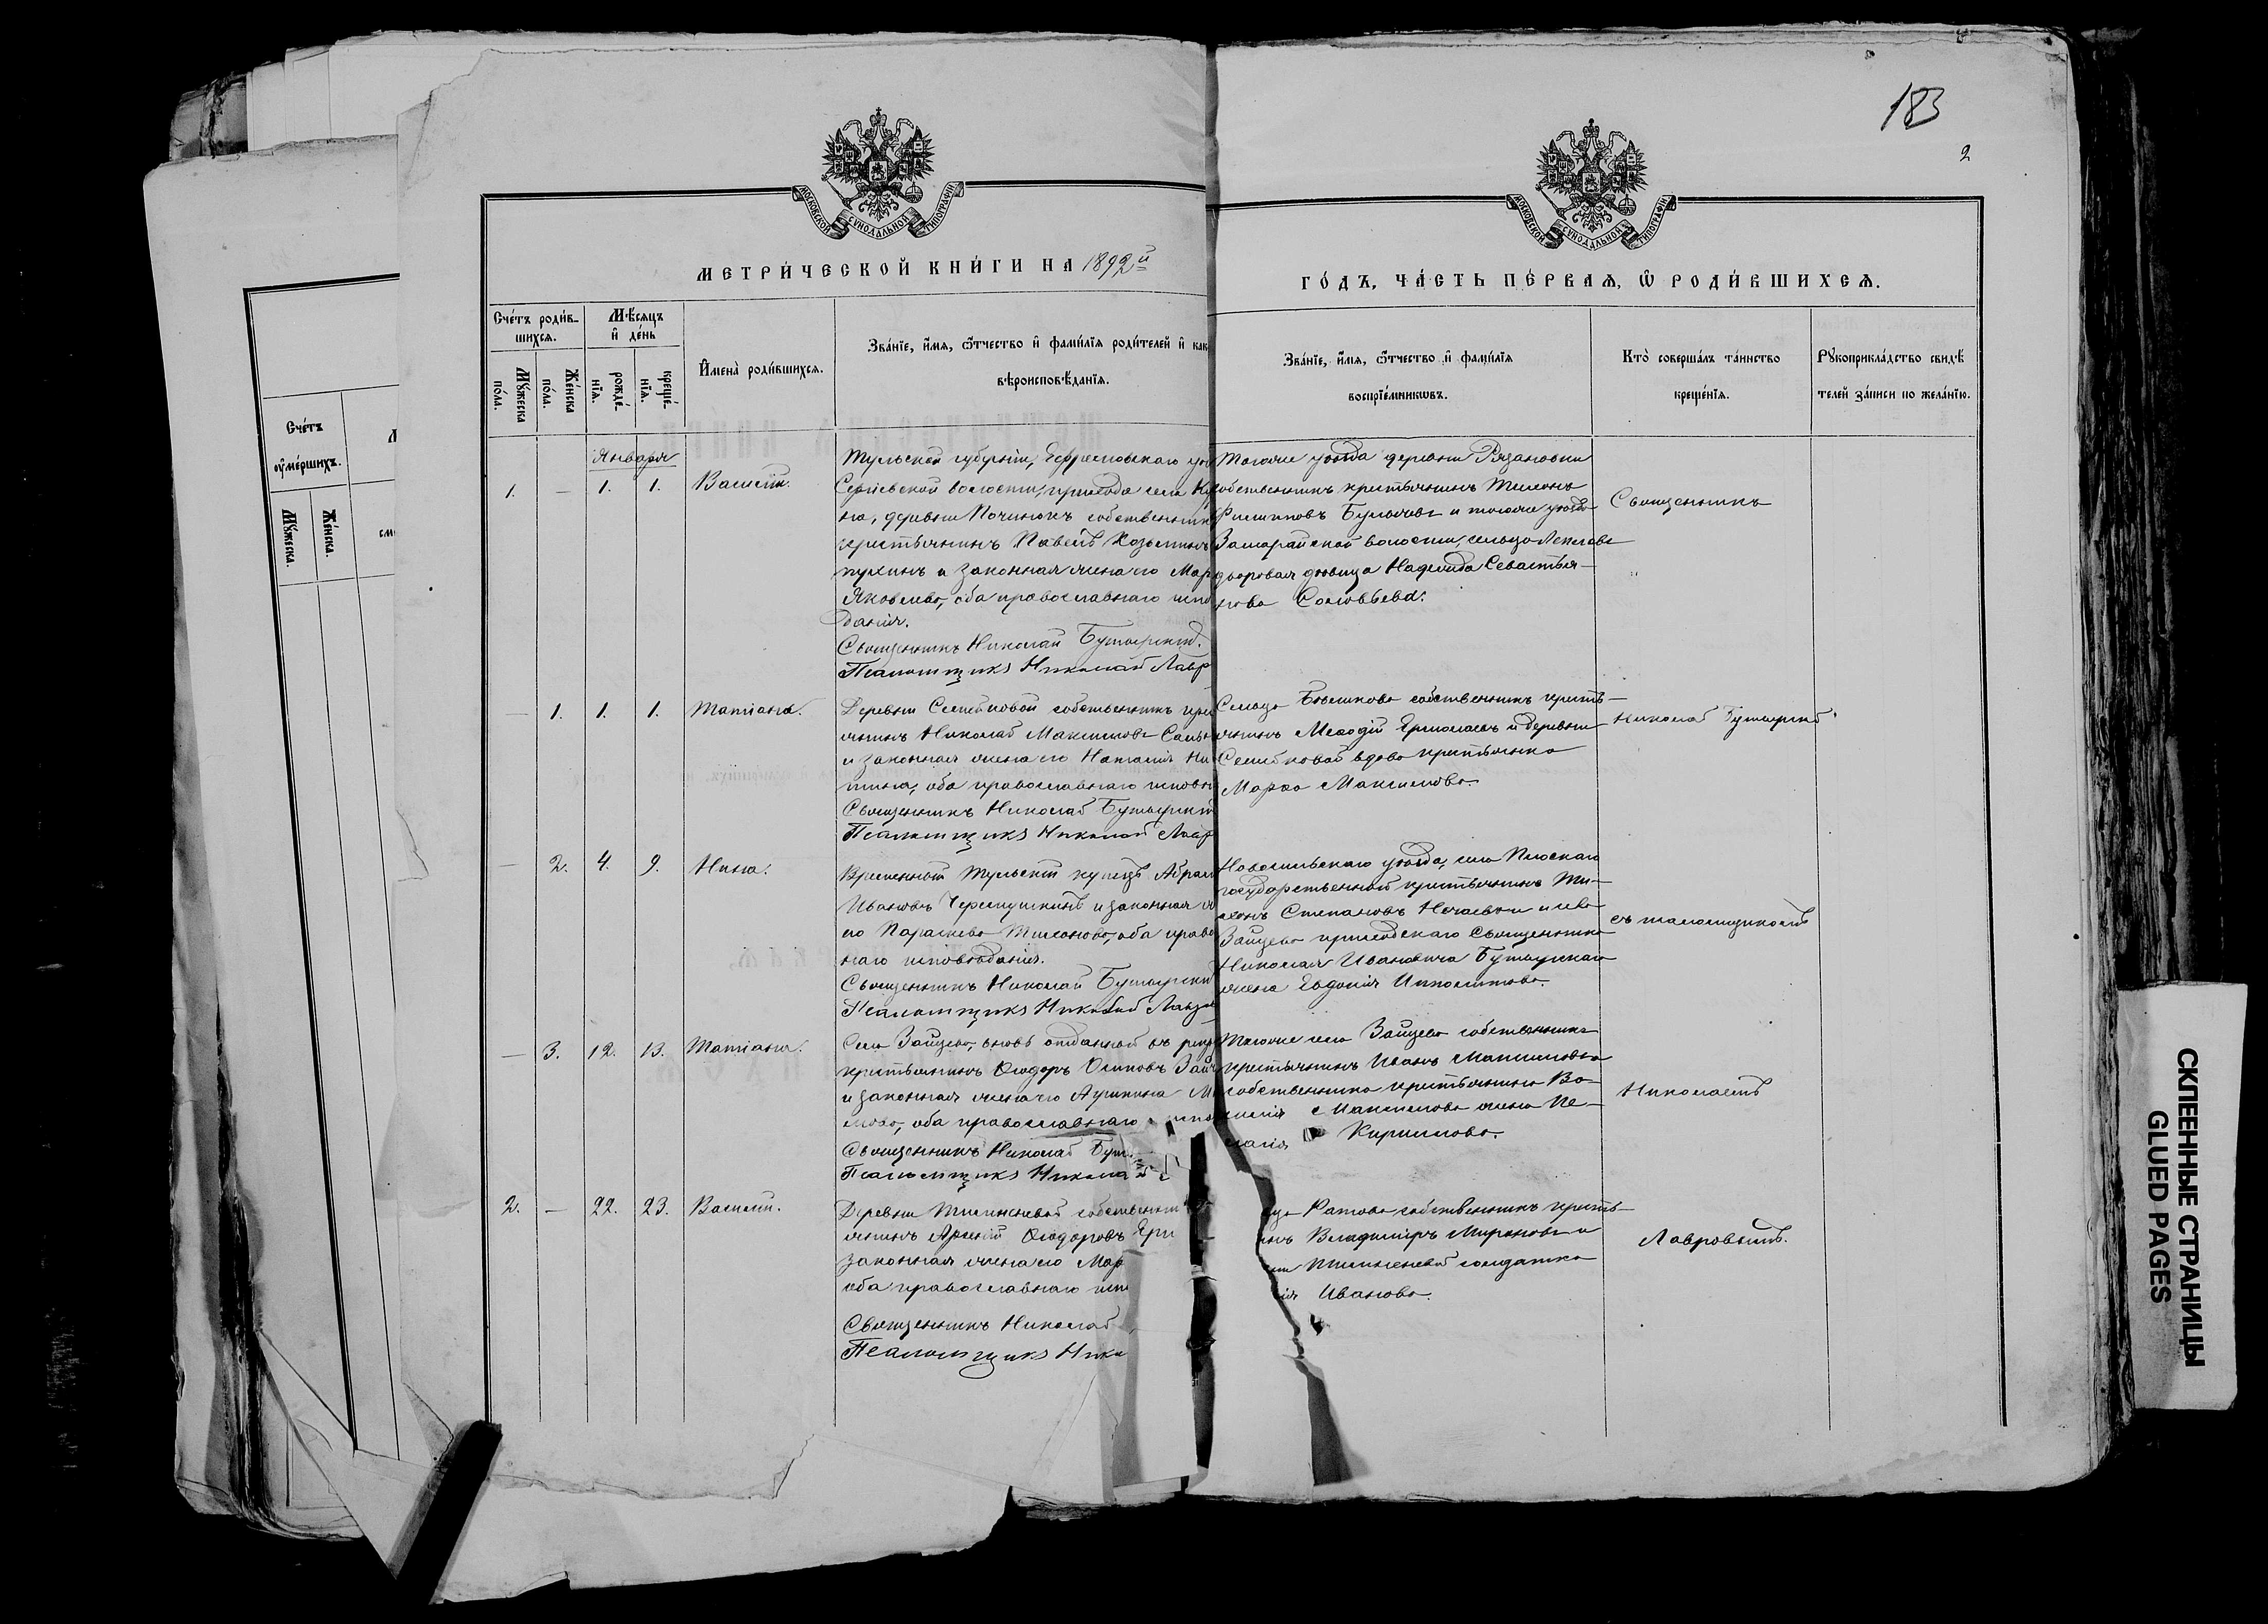 183
2
МОСКОВСКОЙ СѴНОДАЛЬНОЙ ТИПОГРАФІИ
МОСКОВСКОЙ СѴНОДАЛЬНОЙ ТИПОГРАФІИ
МЕТРИ́ЧЕСКОЙ КНИ́ГИ НА 1892й
ГО́ДЪ, ЧА́СТЬ ПЕ́РВАѦ, Ѡ РОДИ́ВШИХСѦ.
Сче́тъ роди́в-
шихсѧ.
Мꙋ́жеска
по́ла.
Же́нска
по́ла.
Мѣ́сѧцъ
и҆ де́нь
рожде́-
нїѧ.
креще́-
нїѧ.
И҆мена̀ роди́вшихсѧ.
Зва́нїе, и҆́мѧ, ѻ҆́тчество и҆ фами́лїѧ роди́телей и҆ как
вѣроисповѣ́данїѧ.
Зва́нїе, и҆́мѧ, ѻ҆́тчество и҆ фами́лїѧ
воспрїе́мникѡвъ.
Кто̀ соверша́лъ та́инство
креще́нїѧ.
Рꙋкоприкла́дство свидѣ́
телей за́писи по жела́нїю.
Сче́тъ
ѹ҆ме́ршихъ.
Мꙋ́жеска.
Же́нска.
Января
1. — 1. 1. Василій.
Тульской губерніи, Ефремовскаго уѣ
Сергіевской волости, прихода села
на, деревни Починокъ собственникъ
крестьянинъ Павелъ Козьминъ
и законная жена его Мар
Яковлева, оба православнаго испо
данія.
Священникъ Николай Бутырскій.
Псаломщикъ Николай Лавр
Тогоже уѣзда деревни Рязановки
собственникъ крестьянинъ Тихонъ
Филиповъ и тогоже уѣзда
волости, сельца
дворовая дѣвица Надежда Севастья-
нова Соловьева.
Священникъ
— 1. 1. 1. Татіана.
Деревни Семенковой собственникъ кре
янинъ Николай Максимовъ
и законная жена его Наталія Ни
тина, оба православнаго исповѣ
Священникъ Николай Бутырскій
Псаломщикъ Николай Лавр
Сельца собственникъ кресть-
янинъ Меѳодій Ермолаевъ и деревни
Семенковой вдова крестьянка
Марѳа Максимова.
Николай Бутырскій
— 2. 4. 9. Нина.
Временный Тульскій купецъ Абрам
Ивановъ Черемушкинъ и законная ж
его Параскева Тихонова, оба право
наго исповѣданія.
Священникъ Николай Бутырскій
Псаломщикъ Николай Лавро
Новосильскаго уѣзда, села Плоскаго
государственный крестьянинъ Ти-
хонъ Степановъ и села
Зайцева приходскаго Священника
Николая Ивановича Бутырскаго
жена Евдокія Ипполитова.
съ псаломщикомъ
— 3. 12. 13. Татіана.
Села Зайцева, вновь отданный въ рекр
крестьянинъ Ѳеодоръ Осиповъ Зай
и законная жена его Акилина М
мова, оба православнаго испо
Священникъ Николай Бут
Псаломщикъ Никола
Тогоже села Зайцева собственникъ
крестьянинъ Иванъ Максимовъ и
собственника крестьянина Ва-
силія Максимова жена Пе-
лагія Кирилова.
Николаемъ
2. — 22. 23. Василій.
Деревни собственни
янинъ Арсеній Ѳеодоровъ
законная жена его Мар
оба православнаго исп
Священникъ Николай
Псаломщикъ Нико
Ратова собственникъ кресть-
Владиміръ Мироновъ и
солдатка
Иванова.
Лавровымъ.
СКЛЕЕННЫЕ СТРАНИЦЫ
GLUED PAGES